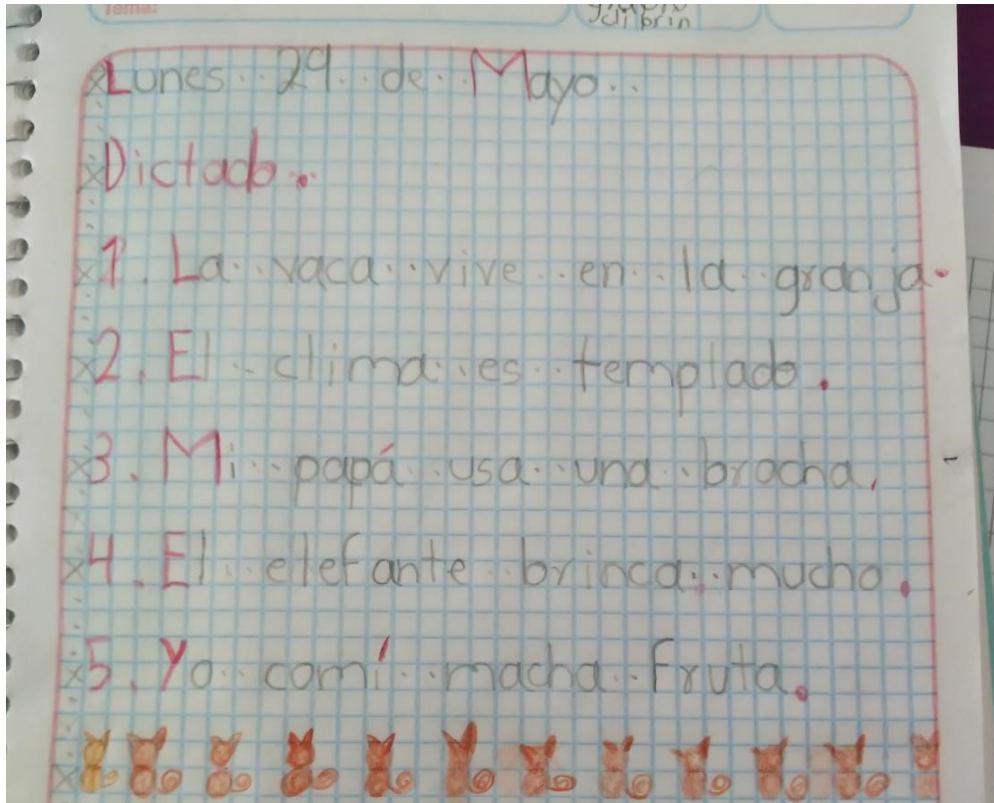 Tema:
Lunes 29 de Mayo
Dictado.
1. La vaca vive en la granja.
2. El clima es templado.
3. Mi papá usa una brocha.
4. El elefante brinca mucho.
5. Yo comí macha fruta.